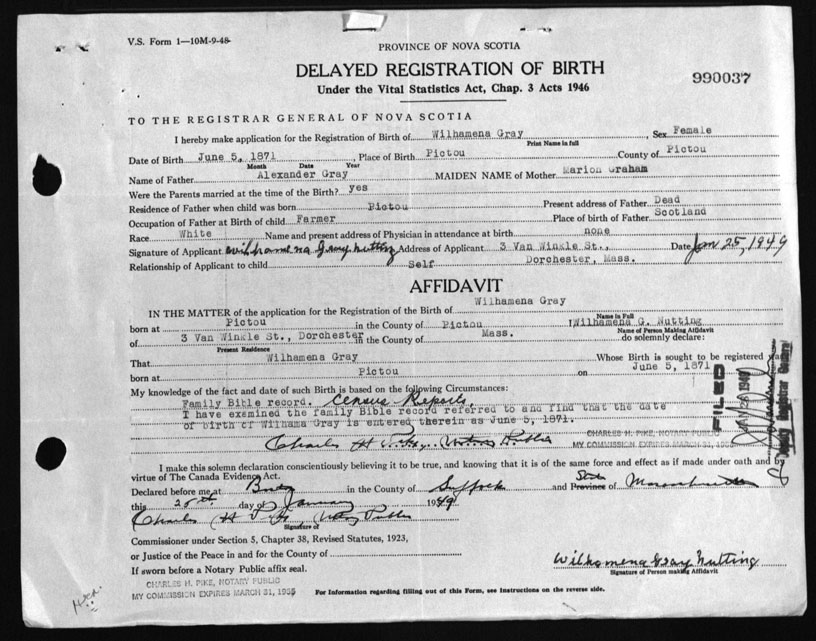 V.S. Form 1—10M-9-48
PROVINCE OF NOVA SCOTIA
DELAYED REGISTRATION OF BIRTH
Under the Vital Statistics Act, Chap. 3 Acts 1946
990037
TO THE REGISTRAR GENERAL OF NOVA SCOTIA
I hereby make application for the Registration of Birth of Wilhamena Gray, Sex Female
Print Name in full
Date of Birth June 5, 1871, Place of Birth Pictou County of Pictou
Month Date Year
Name of Father Alexander Gray MAIDEN NAME of Mother Marion Graham
Were the Parents married at the time of the Birth? yes
Residence of Father when child was born Pictou Present address of Father Dead
Occupation of Father at Birth of child Farmer Place of birth of Father Scotland
Race White Name and present address of Physician in attendance at birth none
Signature of Applicant Wilhamena Gray Nutting Address of Applicant 3 Van Winkle St., Date Jan 25, 1949
Relationship of Applicant to child Self Dorchester, Mass.
AFFIDAVIT
IN THE MATTER of the application for the Registration of the Birth of Wilhamena Gray
Name in Full
born at Pictou in the County of Pictou I Wilhamena G. Nutting
Name of Person Making Affidavit
of 3 Van Winkle St., Dorchester in the County of Mass. do solemnly declare:
Present Residence
That Wilhamena Gray Whose Birth is sought to be registered was
born at Pictou on June 5, 1871
My knowledge of the fact and date of such Birth is based on the following Circumstances:
Family Bible record. Census Reports.
I have examined the family Bible record referred to and find that the date
of birth of Wilhama Gray is entered therein as June 5, 1871.
Charles H Pike, Notary Public
CHARLES H. PIKE, NOTARY PUBLIC
MY COMMISSION EXPIRES MARCH 31, 1955
FILED
Deputy Registrar General
I make this solemn declaration conscientiously believing it to be true, and knowing that it is of the same force and effect as if made under oath and by
virtue of The Canada Evidence Act.
Declared before me at in the County of Suffolk and State Province of Massachusetts
this 25th day of January 1949
Charles H Pike, Notary Public
Signature of
Commissioner under Section 5, Chapter 38, Revised Statutes, 1923,
or Justice of the Peace in and for the County of
If sworn before a Notary Public affix seal.
Wilhamena Gray Nutting
Signature of Person making Affidavit
CHARLES H. PIKE, NOTARY PUBLIC
MY COMMISSION EXPIRES MARCH 31, 1955
For Information regarding filling out of this Form, see Instructions on the reverse side.